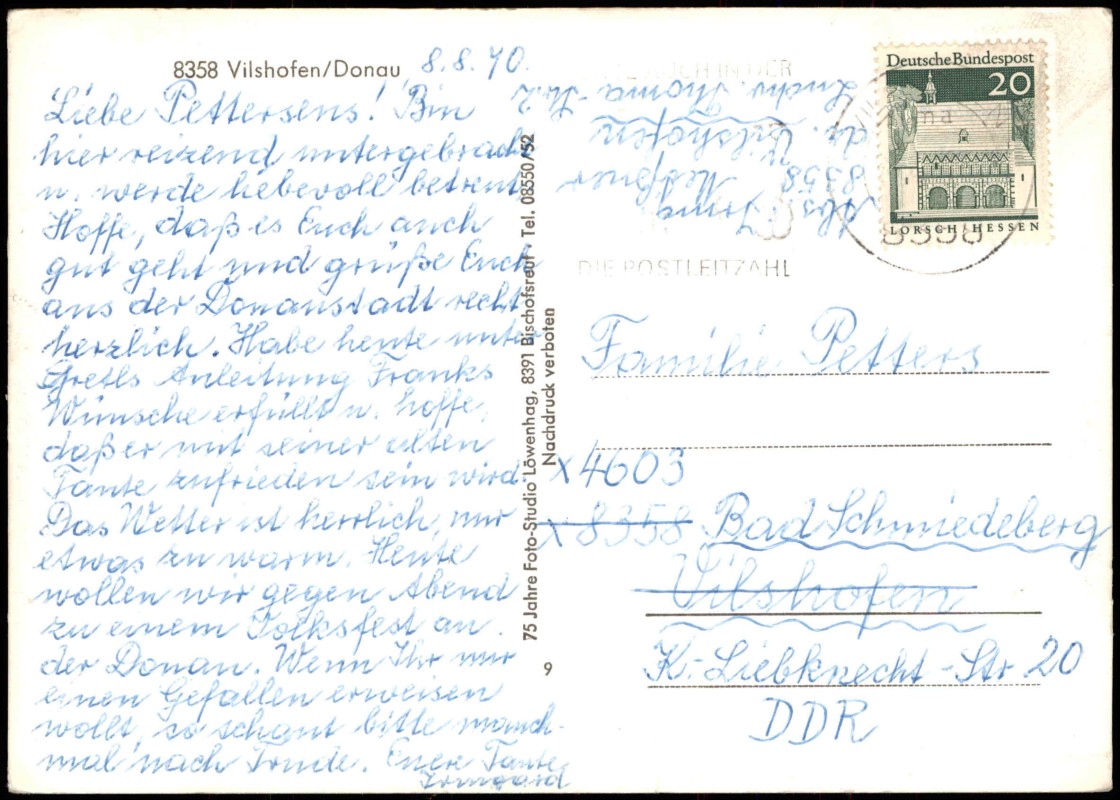 8358 Vilshofen/Donau 8.8.70.
Liebe Pettersens! Bin
hier reizend untergebracht
u. werde liebevoll betreut
Hoffe, daß es Euch auch
gut geht und grüße Euch
aus der Donaustadt recht
herzlich. Habe heute unter
Gretls Anleitung Franks
Wünsche erfüllt u. hoffe,
daß er mit seiner alten
Tante zufrieden sein wird.
Das Wetter ist herrlich, nur
etwas zu warm. Heute
wollen wir gegen Abend
zu einem Volksfest an
der Donau. Wenn Ihr mir
einen Gefallen erweisen
wollt, so schaut bitte manch-
mal nach Trude. Eure Tante
Irmgard
75 Jahre Foto-Studio Löwenhag, 8391 Bischofsreut, Tel. 08550/52
Nachdruck verboten
9
Abs. Irma
8358 Vilshofen
Ludw. Thoma-Str. 2
IN DER
DIE POSTLEITZAHL
8358
Deutsche Bundespost
20
LORSCH/HESSEN
Familie Petters
x 4603
x 8358 Bad Schmiedeberg
Vilshofen
K.-Liebknecht-Str 20
DDR